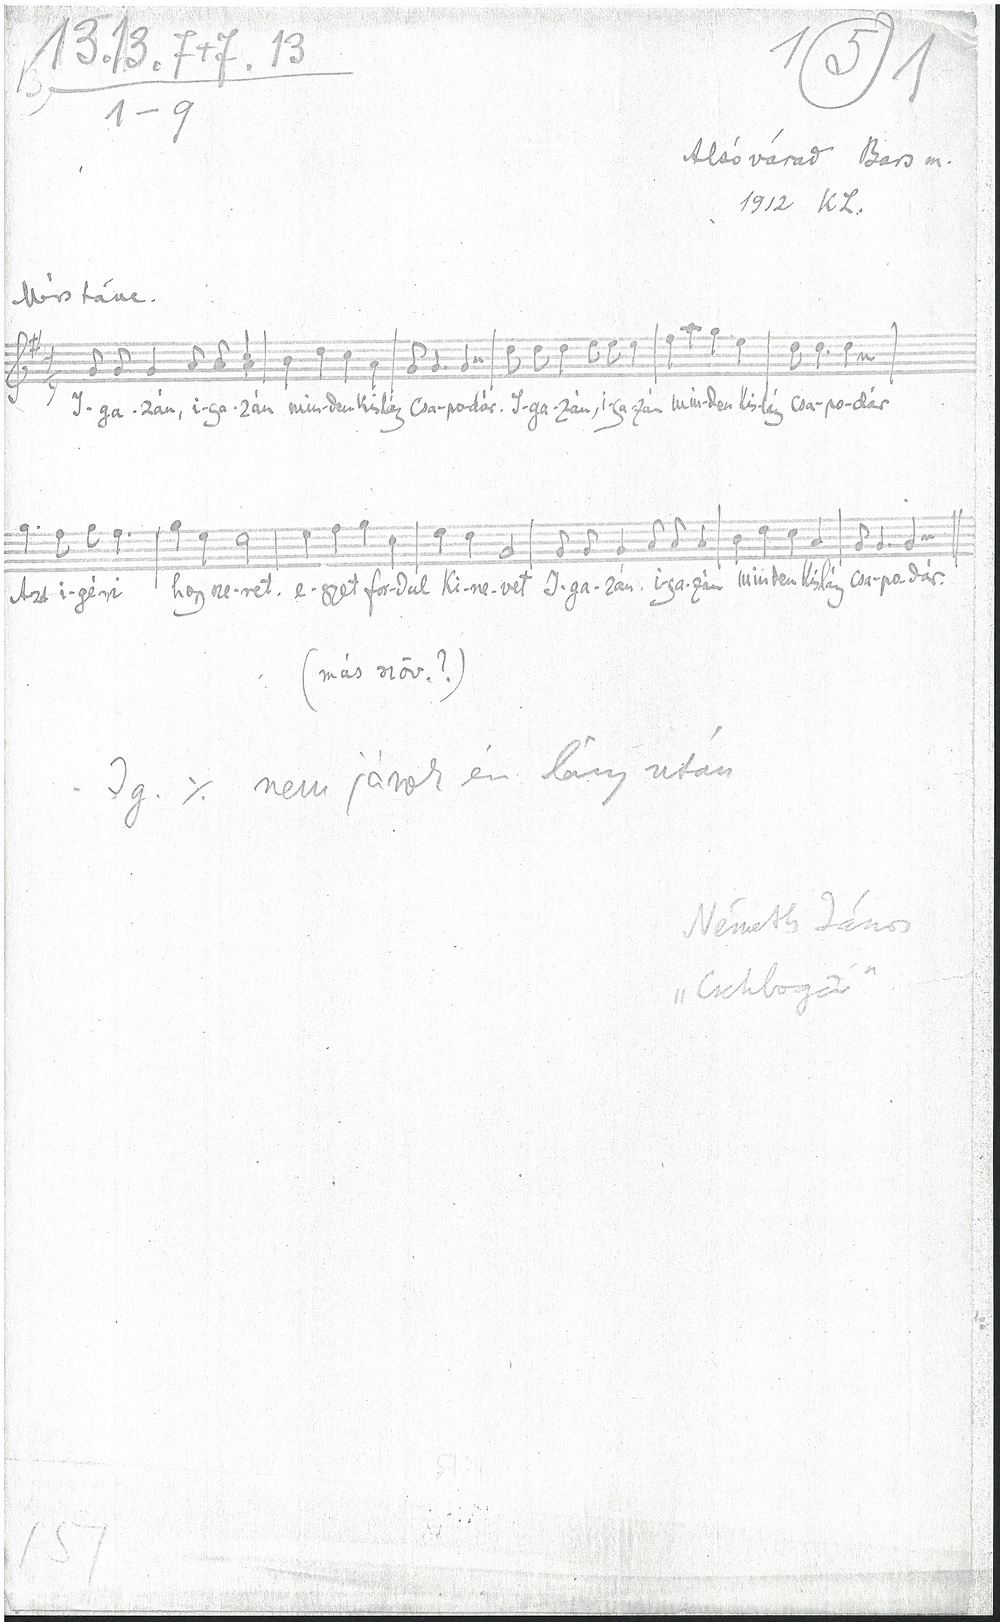 13.13. 7+7. 13
1 – 9
1 5 1
Alsóvárad Bars m.
1912 KL.
I-ga-zán, i-ga-zán min-den kislány csa-po-dár. I-ga-zán, i-ga-zán min-den kis-lány csa-po-dár
Azt i-gé-ri hogy sze-ret. e-gyet for-dul ki-ne-vet I-ga-zán. i-ga-zán minden kislány csa-po-dár.
(más szöv.?)
Ig. ٪ nem járok én lány után
Németh János
151